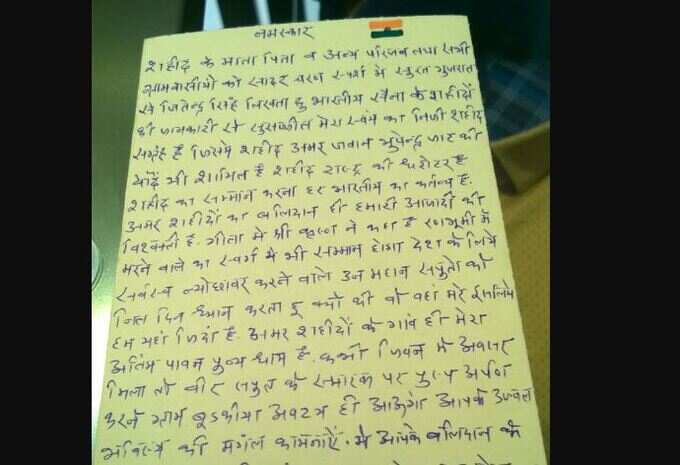 नमस्कार
शहीद के माता पिता व अन्य परिजन तथा सभी
ग्रामवासीयो को सादर चरण स्पर्श मे सुरत गुजरात
से जितेन्द्र सिंह लिखता हु भारतीय सेना के शहीदों
की जानकारी से सुसज्जीत मेरा स्वंय का निजी शहीद
संग्रह है जिसमे शहीद अमर जवान भुपेन्द्र जाट की
यादें भी शामिल है शहीद राष्ट्र की धरोहर है
शहीद का सम्मान करना हर भारतीय का कर्तव्य है.
अमर शहीदों का बलिदान ही हमारी आजादी की
है. गीता मे श्री कृष्ण ने कहा है रणभूमी मे
मरने वाले का स्वर्ग मे भी सम्मान होगा देश के लिये
सर्वस्व न्योछावर करने वाले उन महान सपुतो को
नित दिन ध्यान करता हु क्यो की वो वहां मरे इसलिये
हम यहां जिंदा है. अमर शहीदों के गांव ही मेरा
अंतिम पावन पुन्य धाम है. कभी जिवन मे अवसर
मिला तो वीर सपुत के स्मारक पर पुष्प अर्पण
करने ग्राम अवश्य ही आऊंगा आपके उज्वल
भविष्य की मंगल कामनाएँ. मे आपके बलिदान के